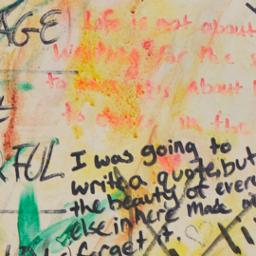 AGE
Life is not about
waiting for the
to
it is about
to
in the
FUL
I was going to
write a quote, but
the beauty of ever
else in here made
forget it